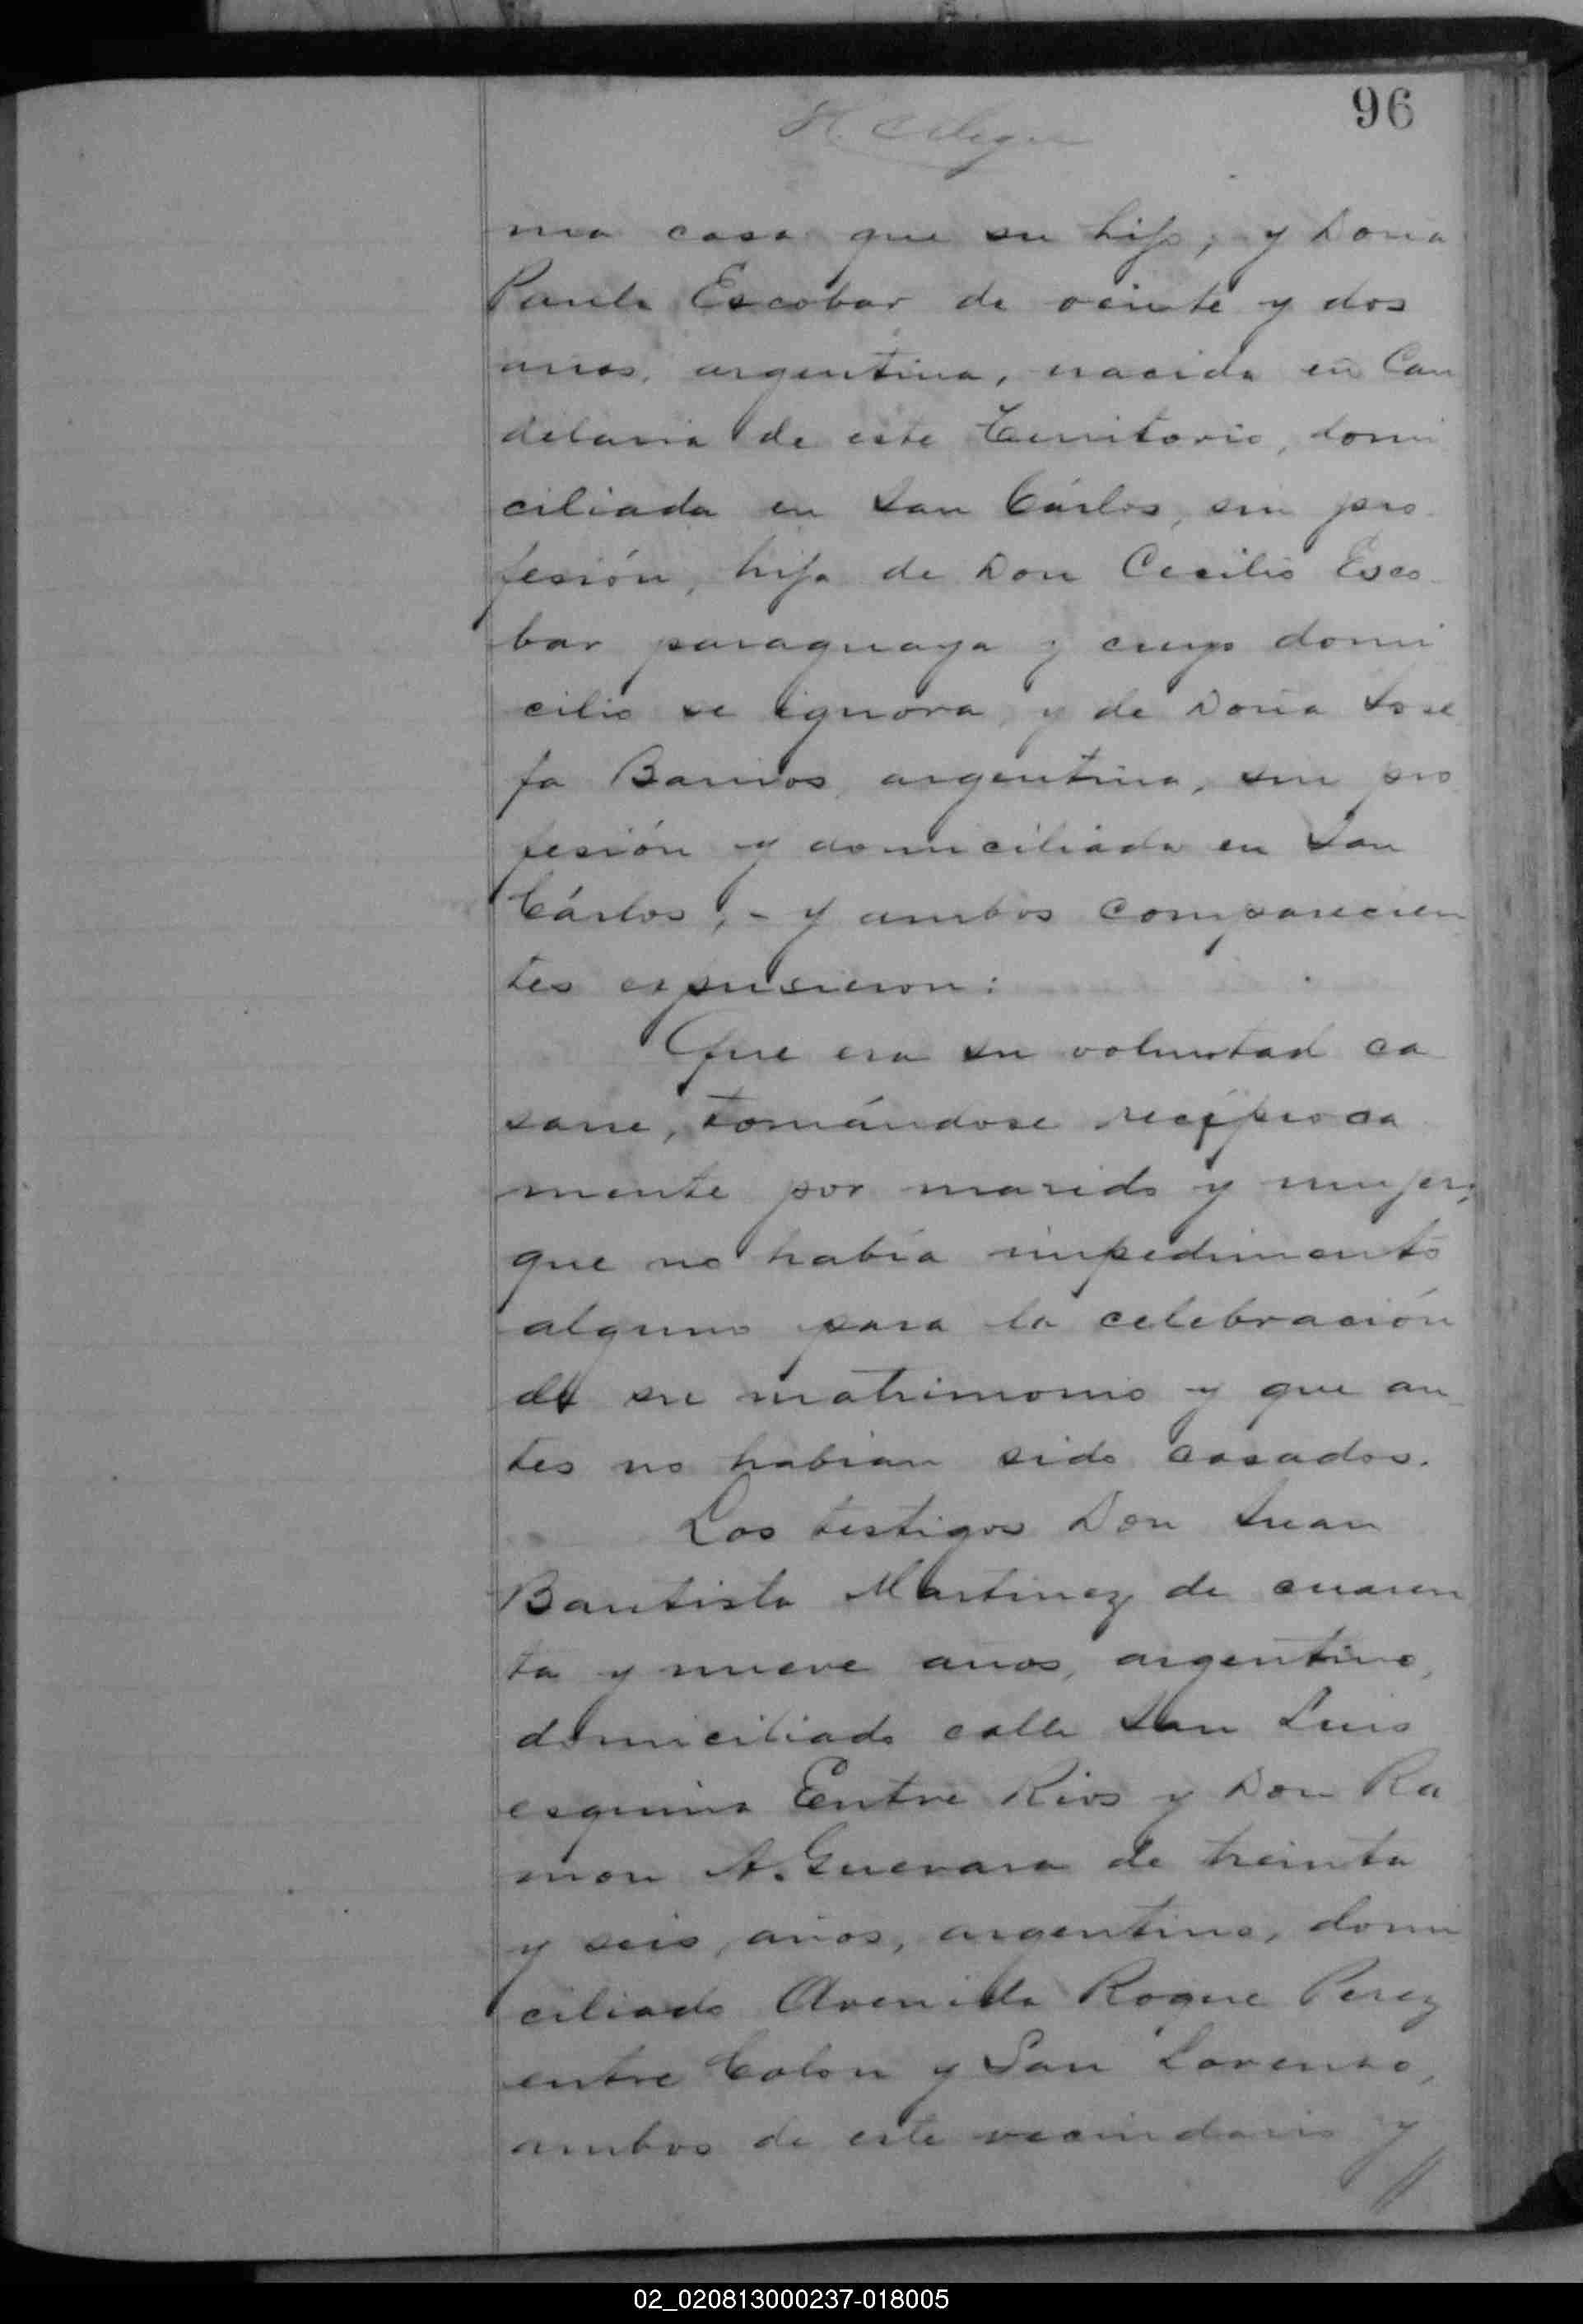 96
ma casa que su hijo; y Doña
Paula Escobar de veinte y dos
años, argentina, nacida en Can
delaria de este Territorio, domi
ciliada en San Cárlos, sin pro
fesión, hija de Don Cecilio Esco
bar paraguayo y cuyo domi
cilio se ignora, y de Doña Jose
fa Barrios, argentina, sin pro
fesión y domiciliada en San
Cárlos; - y ambos comparecien
tes expusieron:
Que era su voluntad ca
sarse, tomándose recíproca
mente por marido y mujer;
que no había impedimento
alguno para la celebración
de su matrimonio y que an
tes no habian sido casados.
Los testigos Don Juan
Bautista Martinez de cuaren
ta y nueve años, argentino,
domiciliado calle San Luis
esquina Entre Rios y Don Ra
mon A. Guevara de treinta
y seis, años, argentino, domi
ciliado Avenida Roque Perez
entre Colon y San Lorenzo,
ambos de este vecindario y
02_020813000237-018005